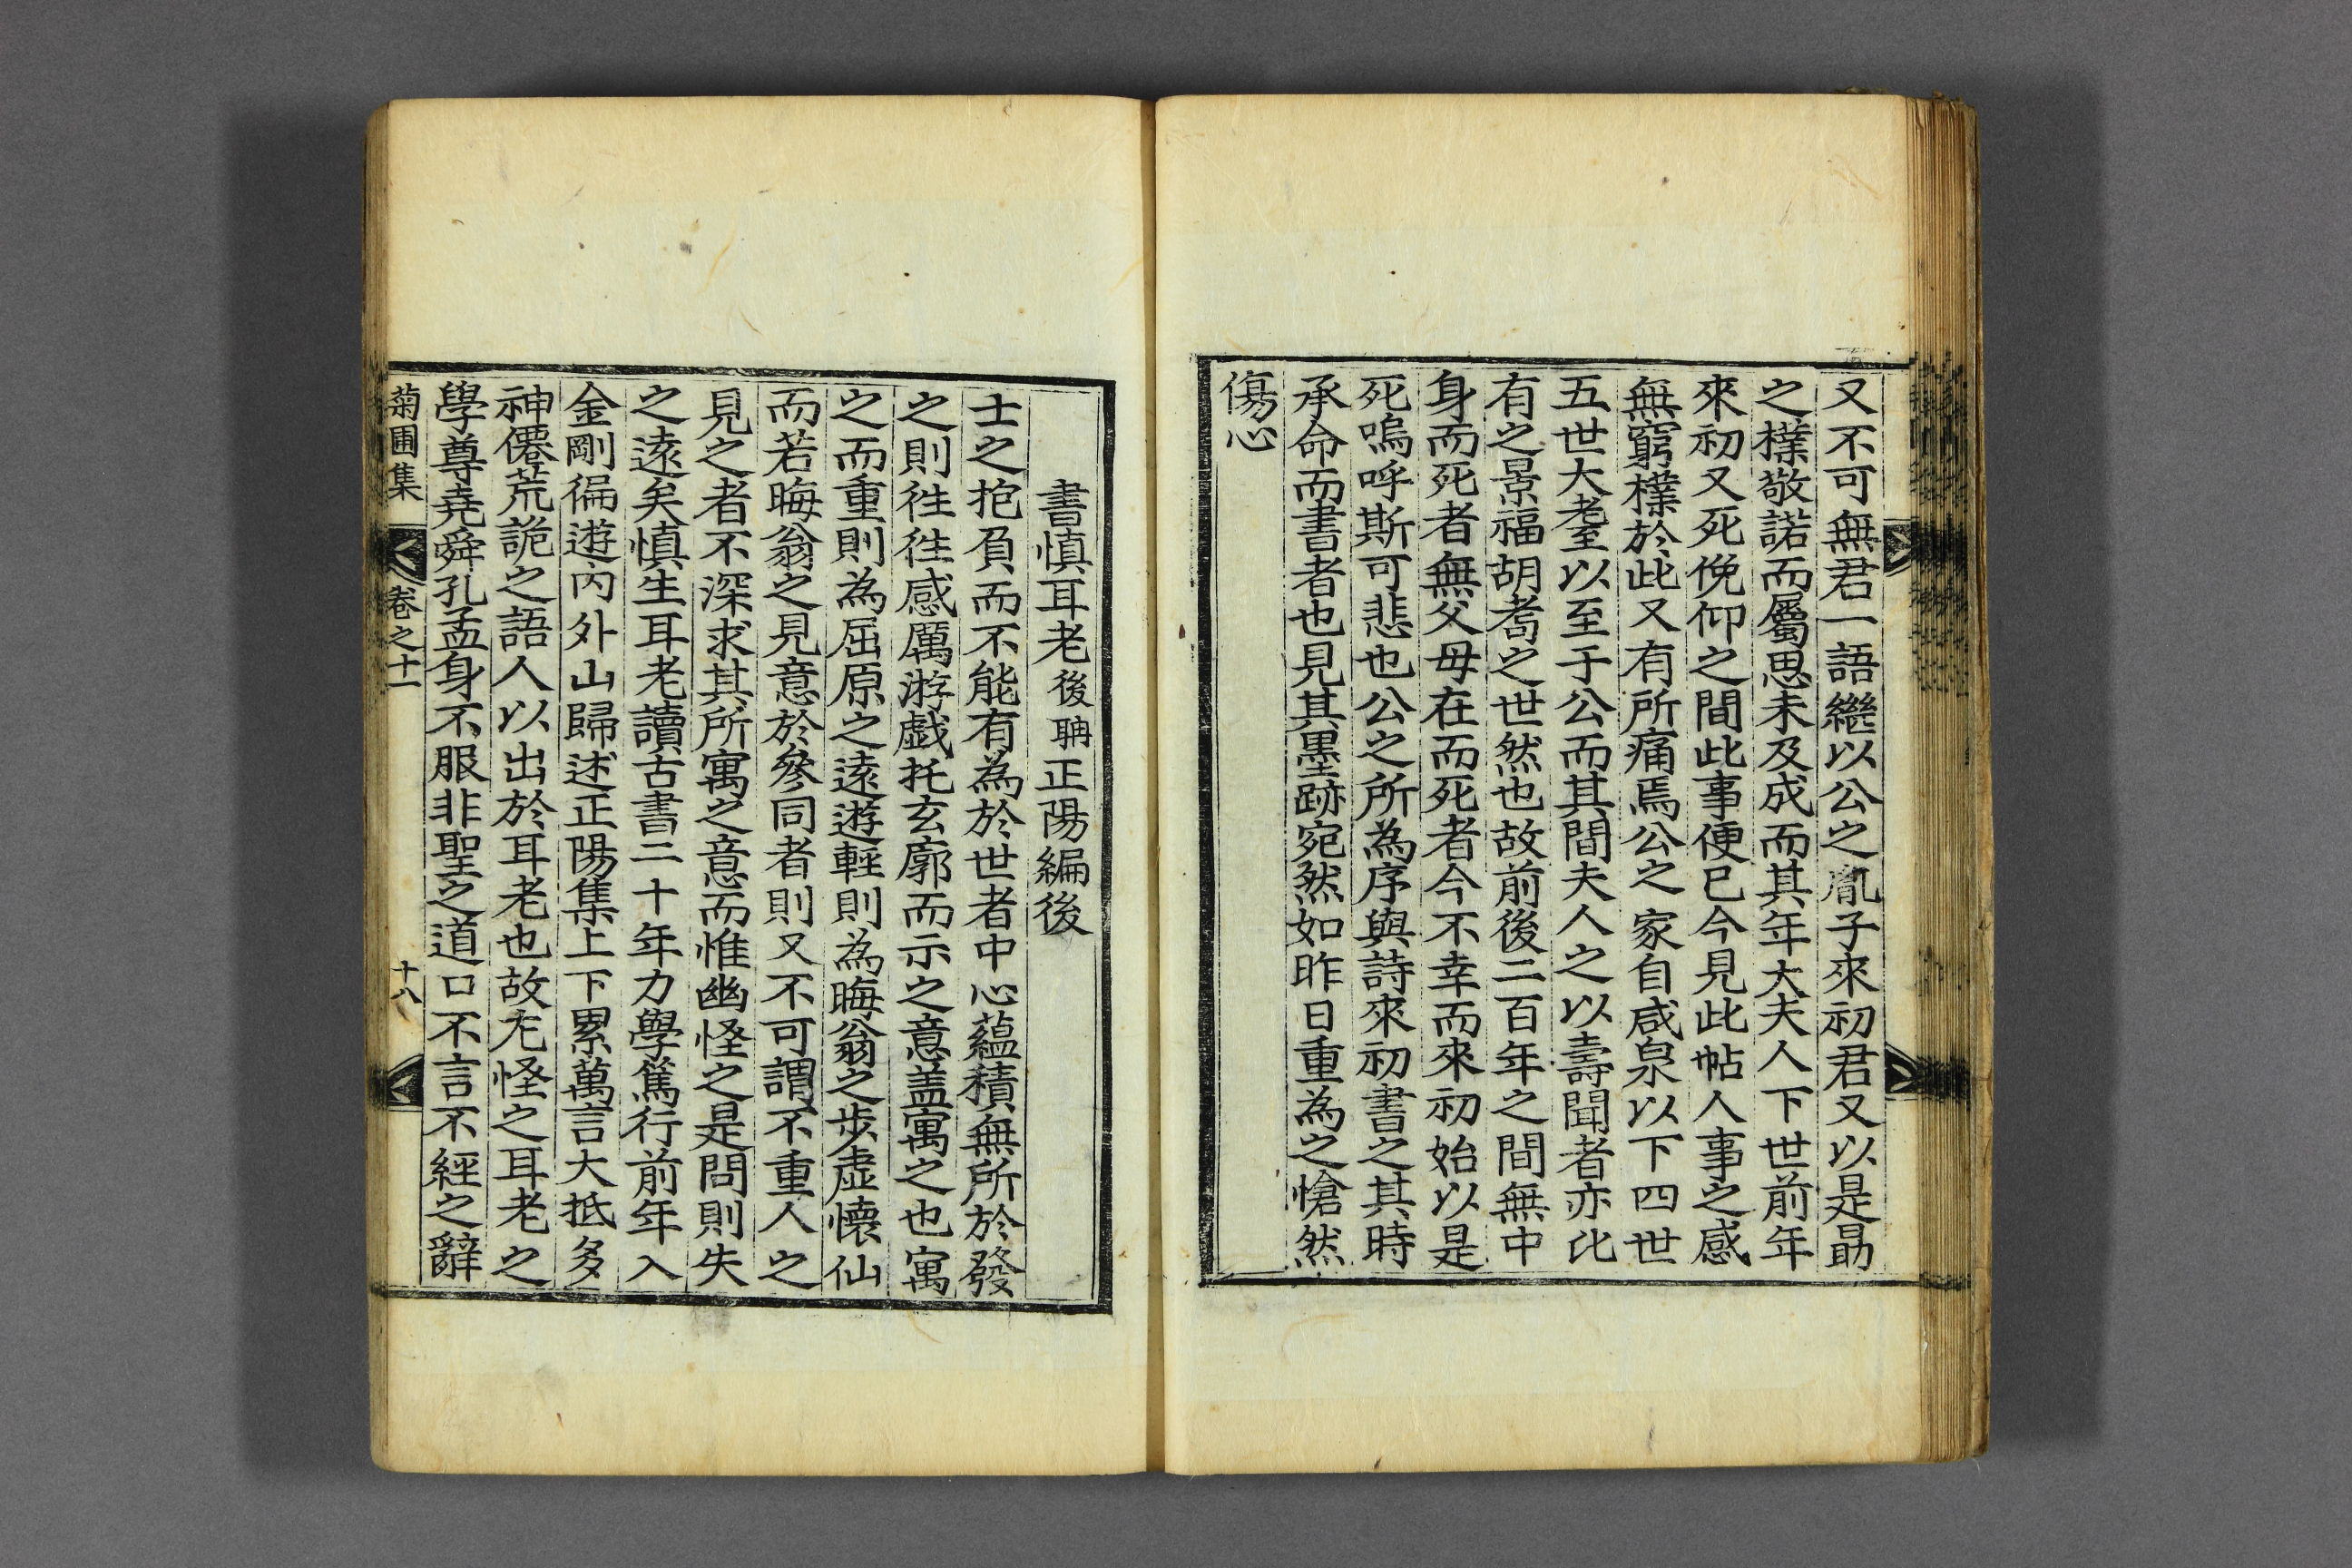 又不可無君一語繼以公之胤子來初君又以是勗
之檏敬諾而屬思未及成而其年大夫人下世前年
來初又死俛仰之間此事便已今見此帖人事之感
無窮檏於此又有所痛焉公之家自咸泉以下四世
五世大耋以至于公而其間夫人之以壽聞者亦比
有之景福胡耇之世然也故前後二百年之間無中
身而死者無父母在而死者今不幸而來初始以是
死嗚呼斯可悲也公之所為序與詩來初書之其時
承命而書者也見其墨跡宛然如昨日重為之愴然
傷心
書慎耳老後聃正陽編後
士之抱負而不能有為於世者中心蘊積無所於發
之則徃徃感厲游戱托玄廓而示之意盖寓之也寓
之而重則為屈原之遠遊輕則為晦翁之步虛懷仙
而若晦翁之見意於參同者則又不可謂不重人之
見之者不深求其所寓之意而惟幽怪之是問則失
之遠矣慎生耳老讀古書二十年力學篤行前年入
金剛徧遊內外山歸述正陽集上下累萬言大抵多
神僊荒詭之語人以出於耳老也故尤怪之耳老之
學尊堯舜孔孟身不服非聖之道口不言不經之辭
菊圃集 卷之十一 十八